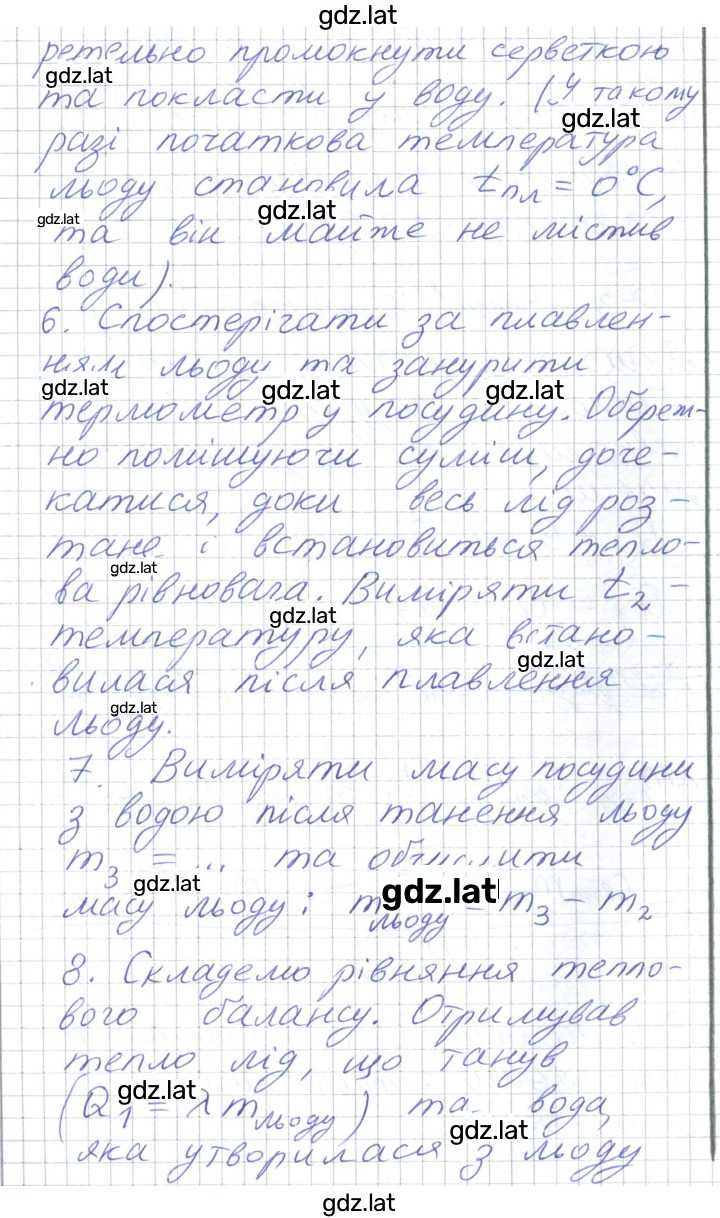 gdz.lat
ретельно промокнути серветкою
gdz.lat
та покласти у воду. (У такому
gdz.lat
разі початкова температура
льоду становила tпл = 0°C,
gdz.lat gdz.lat
та він майже не містив
води).
6. Спостерігати за плавлен-
ням льоду та занурити
gdz.lat gdz.lat gdz.lat
термометр у посудину. Обереж-
но помішуючи суміш, доче-
катися, доки весь лід роз-
тане і встановиться тепло-
gdz.lat
ва рівновага. Виміряти t₂ -
gdz.lat
температуру, яка встано-
gdz.lat
вилася після плавлення
gdz.lat
льоду.
7. Виміряти масу посудини
з водою після танення льоду
m₃ = ... та обчислити
gdz.lat gdz.lat
масу льоду: mльоду = m₃ - m₂
8. Складемо рівняння тепло-
вого балансу. Отримував
тепло лід, що танув
gdz.lat
(Q₁ = λmльоду) та вода,
gdz.lat
яка утворилася з льоду
gdz.lat